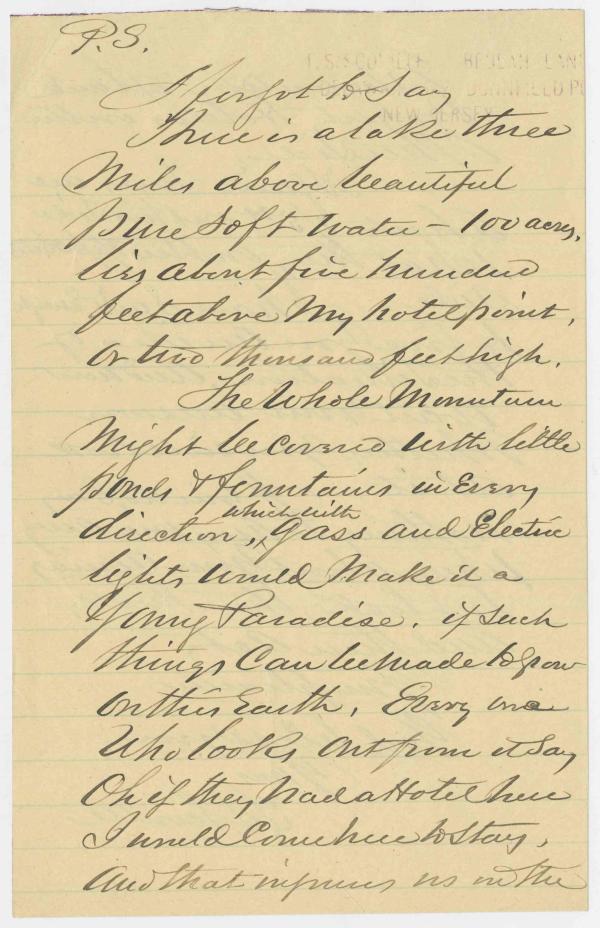 P.S.
I forgot to Say
There is a lake three
Miles above beautiful
pure Soft water – 100 acres,
lies about five hundred
feet above My hotel point,
or two thousand feet high.
The Whole Mountain
Might be covered with little
ponds & fountains in Every
direction, which with gass and Electric
lights would Make it a
Young Paradise, if such
things Can be made to grow
on this Earth, Every one
Who looks out from it Say
Oh if they had a Hotel here
I would Come here to Stay,
And that us on the
NEW JERSEY